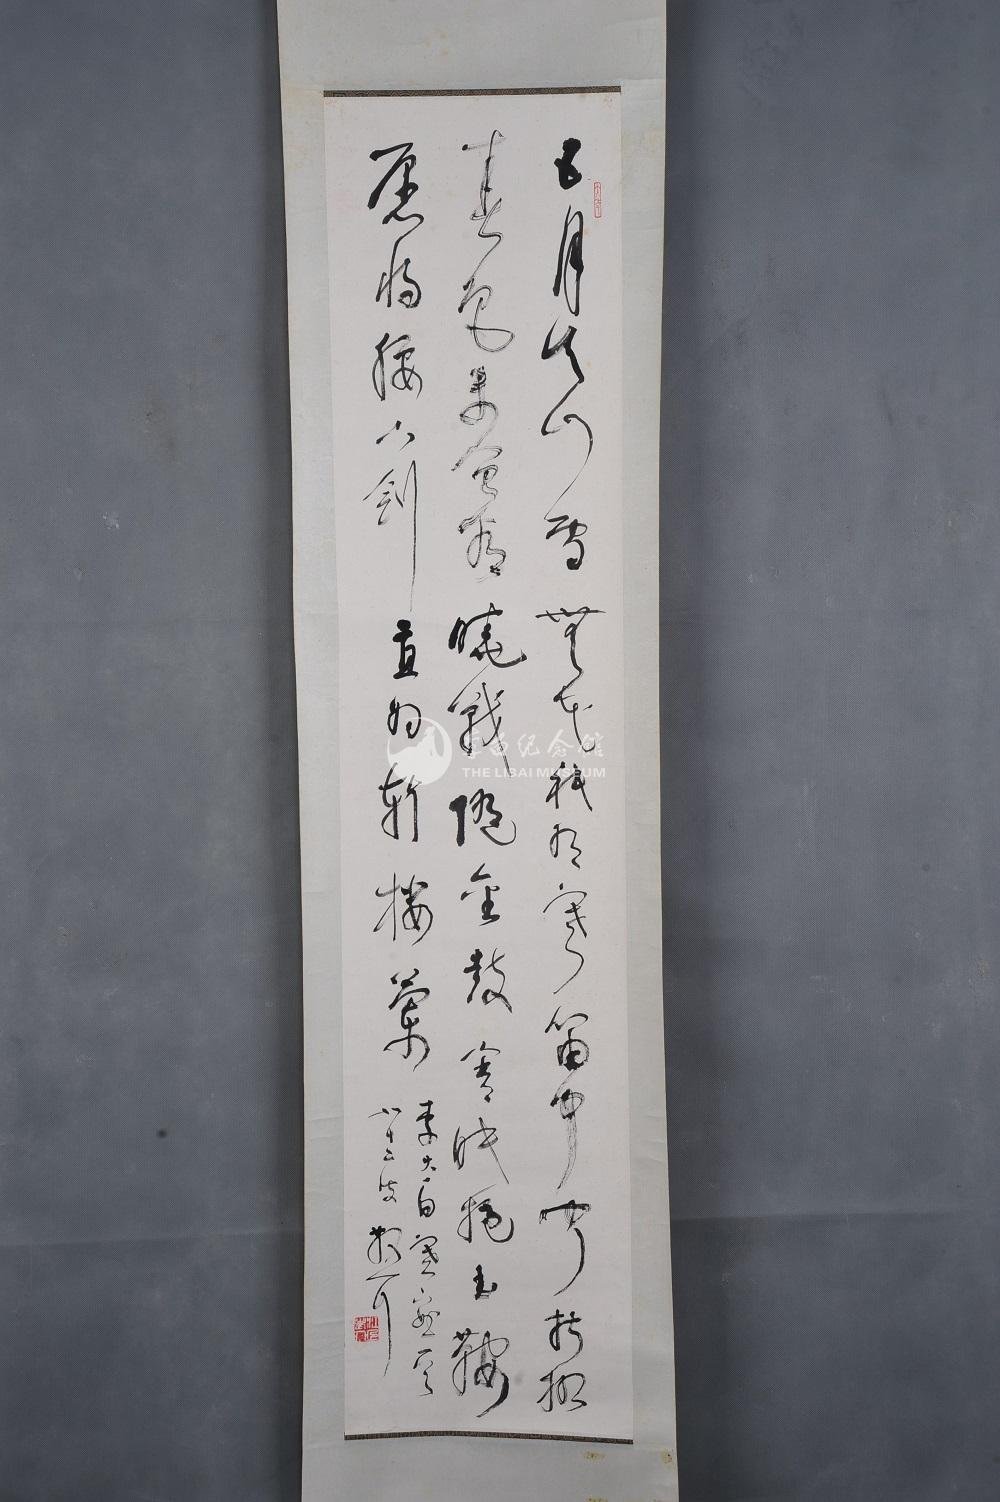 五月天山雪無花祗有寒笛中聞折柳
春色未曾看曉戰随金鼓宵眠抱玉鞍
愿將腰下剑直为斬樓蘭
李太白塞
八十二歲 散耳
李白纪念馆
THE LIBAI MUSEUM